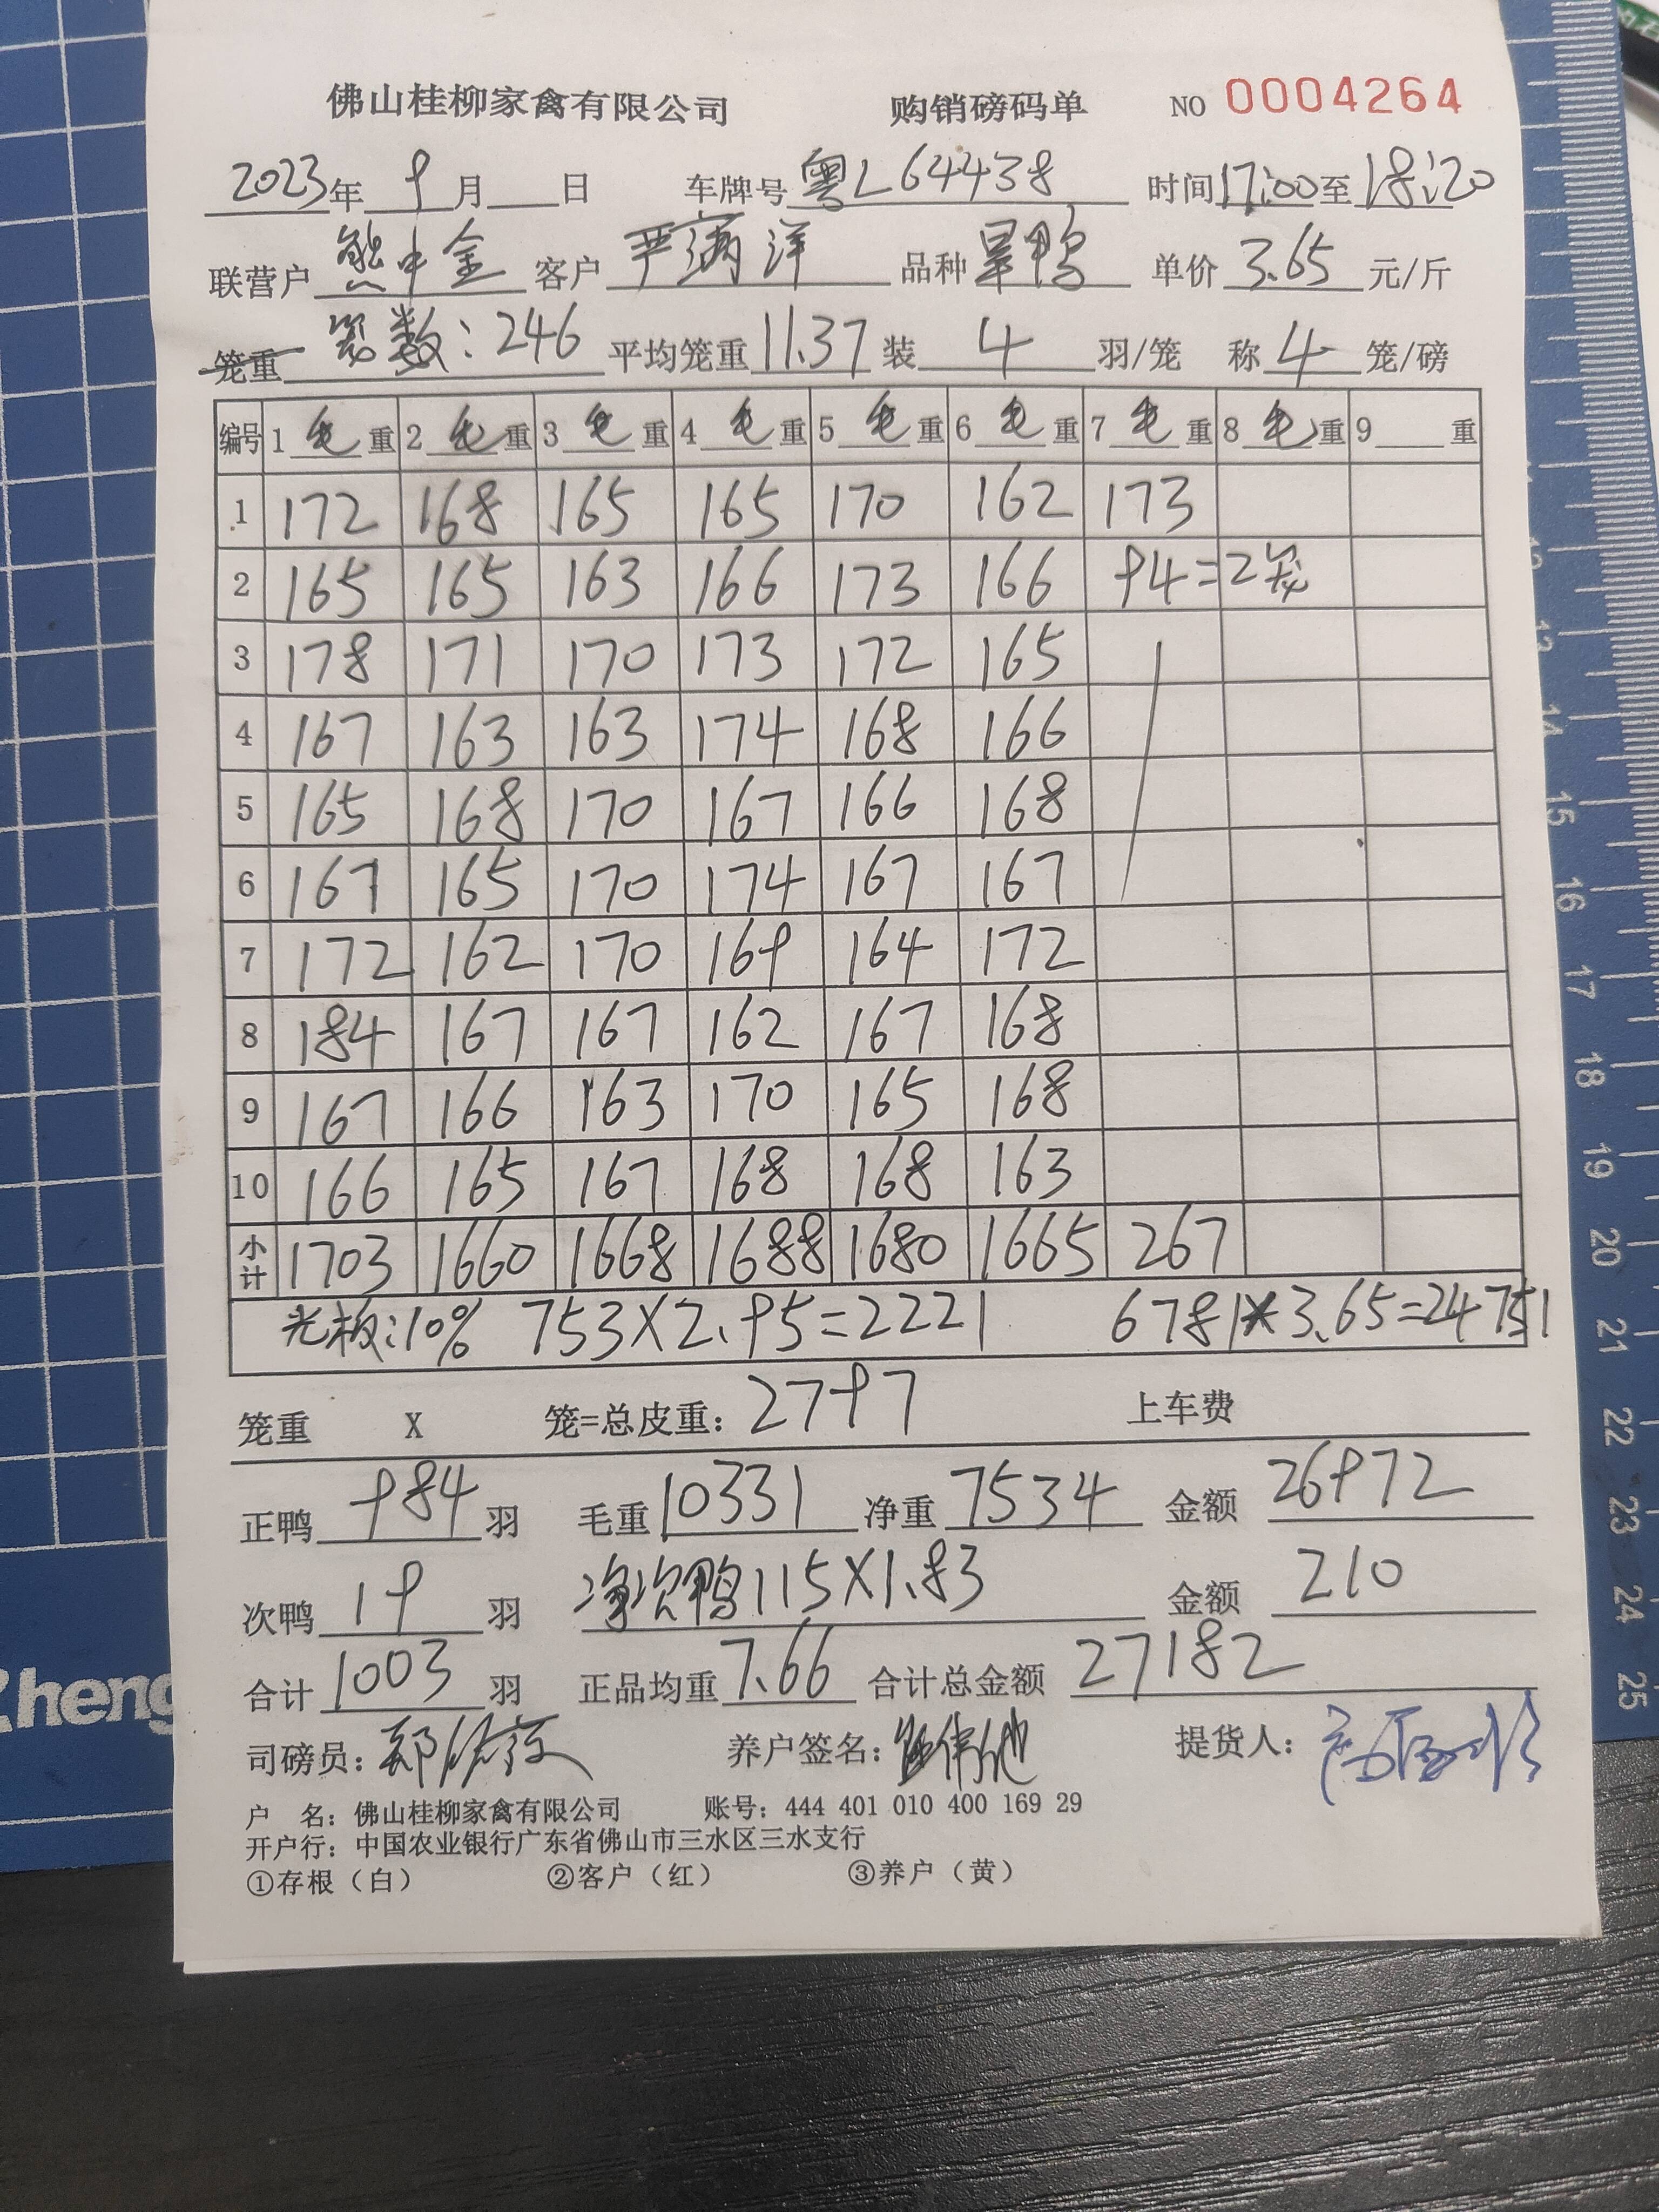 佛山桂柳家禽有限公司 购销磅码单 NO 0004264
2023年 9月 日 车牌号 粤L64438 时间17:00至18:20
联营户 熊中金 客户 严满洋 品种 旱鸭 单价 3.65 元/斤
笼重 笼数:246 平均笼重 11.37 装 4 羽/笼 称 4 笼/磅
编号 1 毛 重 2 毛 重 3 毛 重 4 毛 重 5 毛 重 6 毛 重 7 毛 重 8 毛 重 9 重
1 172 168 165 165 170 162 173
2 165 165 163 166 173 166 94=2笼
3 178 171 170 173 172 165
4 167 163 163 174 168 166
5 165 168 170 167 166 168
6 167 165 170 174 167 167
7 172 162 170 169 164 172
8 184 167 167 162 167 168
9 167 166 163 170 165 168
10 166 165 167 168 168 163
小计 1703 1660 1668 1688 1680 1665 267
光板:10% 753×2.95=2221 6781×3.65=24751
笼重 X 笼=总皮重: 2797 上车费
正鸭 984 羽 毛重 10331 净重 7534 金额 26972
次鸭 19 羽 净次鸭115×1.83 金额 210
合计 1003 羽 正品均重 7.66 合计总金额 27182
司磅员: 养户签名: 提货人:
户 名: 佛山桂柳家禽有限公司 账号: 444 401 010 400 169 29
开户行: 中国农业银行广东省佛山市三水区三水支行
①存根（白） ②客户（红） ③养户（黄）
15
16
17
18
19
20
21
22
23
24
25